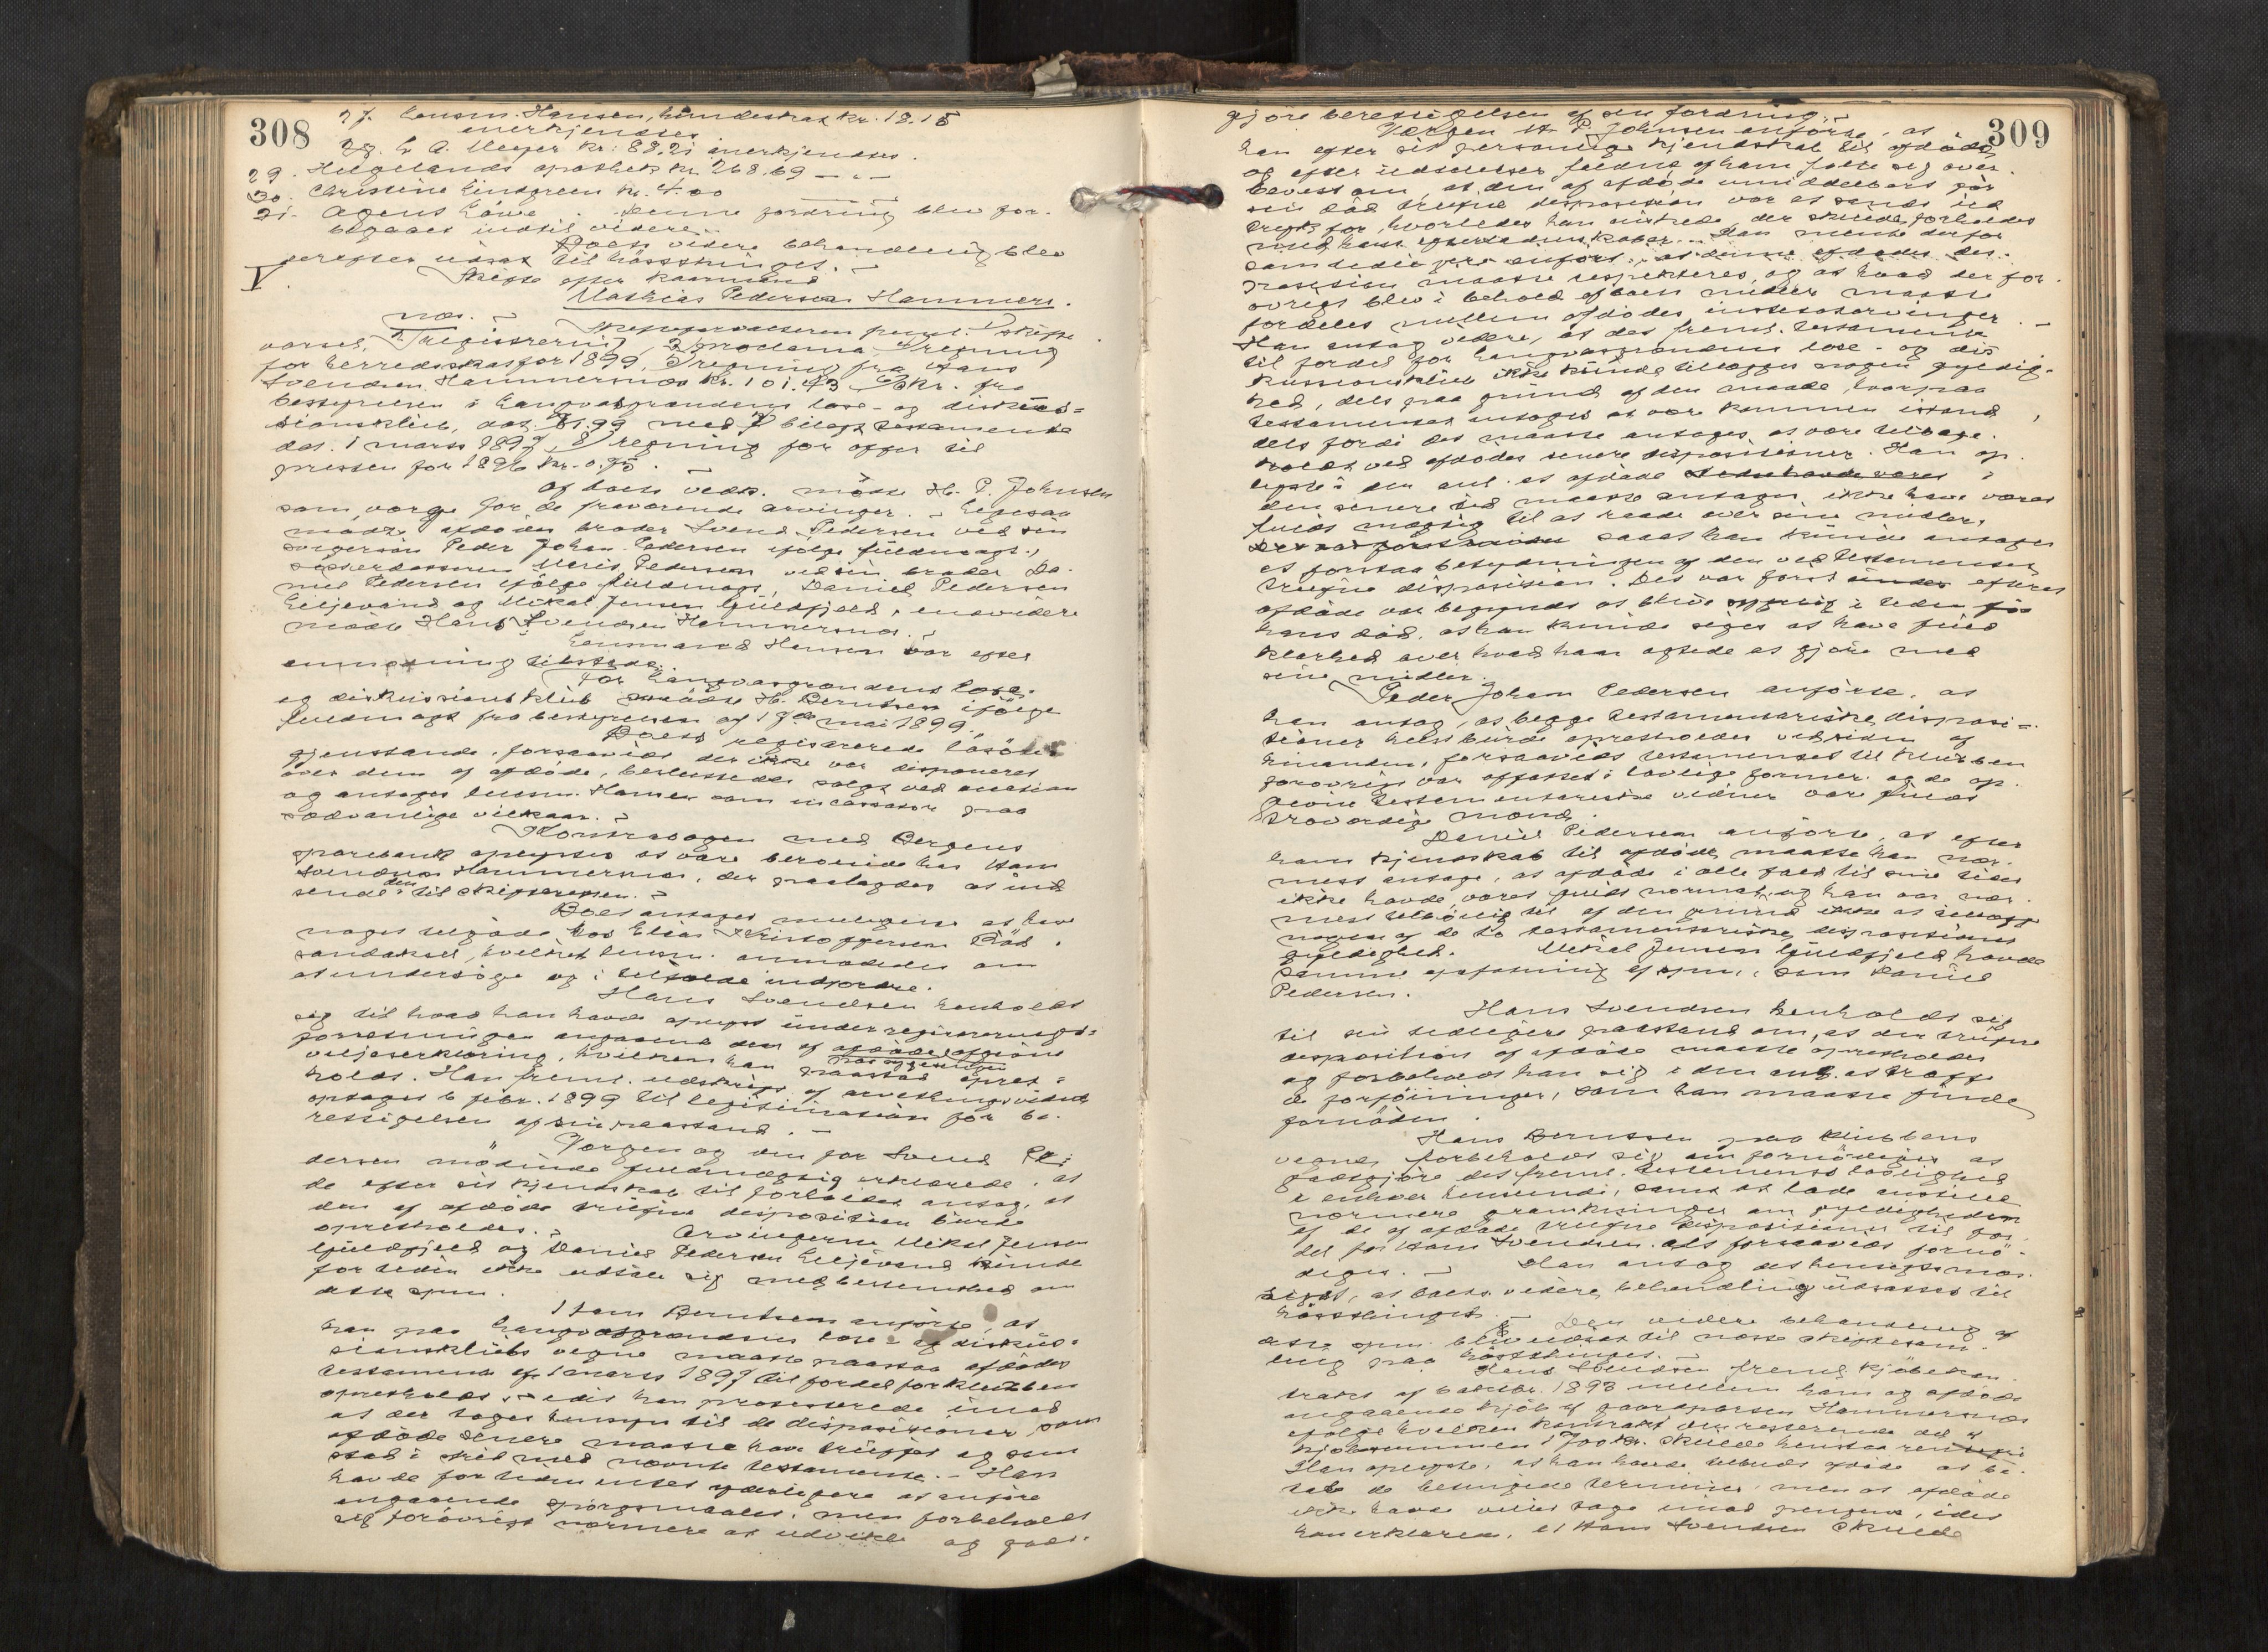 308
27. Lensm. Hansen, hundeskat kr. 18.15
anerkjendtes
28. C. A. Meyer kr. 88,21 anerkjendtes.
29. Helgelands apothek kr. 268.69 — „ —
30. Christine Lindgreen kr. 4.00
31. Agent Löwe. Denne fordring blev for-
bigaaet indtil videre.
Boets videre behandling blev
derefter udsat til høstthinget. —
V. Skifte efter kaarmand
Mathias Pedersen Hammer-
næs. —
Skifteforvalteren freml. 1 skifte-
varsel, 2 registrering, 3 proclama, 4 regning
for herredsskat for 1899, 5 regning fra Hans
Svendsen Hammernæs kr. 101.43 6 skr. fra
bestyrelsen i Langvasgrændens læse- og diskus-
sionsklub, dat. 99 med 7 bilagt testamente
dat. 1 marts 1897, 8 regning for offer til
presten for 1896 kr. 0.75. —
Af boets vedk. mödte H. P. Johnsen
som værge for de fraværende arvinger. - Ligesaa
mödte afdödes broder Svend Pedersen ved sin
svigersön Peder Johan Pedersen ifölge fuldmagt,
södskendebarn Maris Pedersen ved sin broder Da-
niel Pedersen ifölge fuldmagt, Daniel Pedersen
Liljevand og Mikal Jensen Guldfjeld, endvidere
mödte Hans Svendsen Hammernæs. —
Lensmand Hansen var efter
anmodning tilstede.
For Langvasgrændens læse-
og diskussionsklub mödte H. Berntsen ifölge
fuldmagt fra bestyrelsen af 17de mai 1899.
Boets registrerede lösöre-
gjenstande, forsaavidt der ikke var disponeret
over dem af afdöde, besluttedes solgt ved auktion
og antoges lensm. Hansen som incassator paa
sædvanlige vilkaar. —
Kontrabogen med Bergens
sparebank oplystes at være beroende hos Hans
Svendsen Hammernæs, der paalagdes at ind-
sende den til skifteretten. —
Boet antoges muligens at have
noget tilgode hos Elias Kristoffersen Röd-
sandaksel, hvilket lensm. anmodedes om
at undersöge og i tilfælde indfordre.
Hans Svendsen henholdt
sig til hvad han havde oplyst under registrerings-
forretningen angaaende den af afdöde afgivne
viljeserklæring, hvilken han paastod opret-
holdt. Han freml. udskrift af
optaget 6 febr. 1899 til legitimation for be-
rettigelsen af sin paastand. —
Værgen og den for Svend Pe-
dersen mödende fuldmægtig erklærede, at
de efter sit kjendskab til forholdet antog, at
den af afdöde trufne disposition burde
opretholdes. — Arvingerne Mikal Jensen
Guldfjeld og Daniel Pedersen Liljevand kunde
for tiden ikke udtale sig med bestemthed om
dette spm.
Hans Berntsen anförte, at
han paa Langvasgrændens læse- og diskus-
sionsklubs vegne maatte paastaa afdödes
testamente af 1 marts 1897 til fordel for klubben
opretholdt, — idet han protesterede imod
at der toges hensyn til de dispositioner, som
afdöde senere maatte have truffet og som
stod i strid med nævnte testamente. — Han
havde for tiden intet yderligere at anföre
angaaende spörgsmaalet, men forbeholdt
sig forövrigt nærmere at udvikle og godt-
309
gjöre berettigelsen af sin fordring. —
Værgen H. P. Johnsen anförte, at
han efter sit personlige kjendskab til afdöde
og efter udtalelser fældet af ham fölte sig over-
bevist om, at den af afdöde umiddelbart för
sin död trufne disposition var et sandt ud-
tryk for, hvorledes han önskede, der skulde forholdes
med hans efterladenskaber. — Han mente derfor
som tidligere anfört, at denne afdödes dis-
position maatte respekteres, og at hvad der for-
övrigt blev i behold af boets midler maatte
fordeles mellem afdödes intestatarvinger. —
Han antog videre, at det freml. testamente
til fordel for Langvasgrændens læse- og dis-
kussionsklub ikke kunde tillægges nogen gyldig-
hed, dels paa grund af den maade, hvorpaa
testamentet antoges at være kommen istand,
dels fordi det maatte antages at være tilbage-
kaldt ved afdödes senere dispositioner. Han op-
lyste i den anl. at afdöde
den senere tid maatte antages ikke have været
fuldt mægtig til at raade over sine midler,
saaat han kunde antages
at forstaa betydningen af den ved testamentet
trufne disposition. Det var först efterat
afdöde var begyndt at blive i tiden för
hans död, at han kunde siges at have fuld
klarhed over hvad han agtede at gjöre med
sine midler.
Peder Johan Pedersen anförte, at
han antog, at begge testamentariske disposi-
tioner helst burde opretholdes ved siden af
hinanden, forsaavidt testamentet til klubben
forövrigt var affattet i lovlige former og de op-
givne testamentariske vidner var fuldt
troværdige mænd.
Daniel Pedersen anförte, at efter
hans kjendskab til afdöde maatte han nær-
mest antage, at afdöde i alle fald til sine tider
ikke havde været fuldt normal, og han var nær-
mest tilböielig til af den grund ikke at tillægge
nogen af de to testamentariske dispositioner
gyldighed. Mikal Jensen Guldfjeld havde
samme opfatning af spm., som Daniel
Pedersen.
Hans Svendsen henholdt sig
til sin tidligere paastand om, at den trufne
disposition af afdöde maatte opretholdes
og forbeholdt han sig i den anl. at træffe
de forföininger, som han maatte finde
fornöden.
Hans Berntsen paa klubbens
vegne, forbeholdt sig om fornödiges at
godtgjöre det freml. testaments lovlighed
i enhver henseende, samt at lade anstille
nærmere granskninger om gyldigheden
af de af afdöde trufne dispositioner til for-
del for Hans Svendsen alt forsaavidt fornö-
diges. — Han antog det hensigtsmæs-
sigst, at boets videre behandling udsattes til
höstthinget. — Den videre behandling af
dette spm. blev udsat til næste skiftesam-
ling paa höstthinget. —
Hans Svendsen freml. kjöbekon-
trakt af 6 oktbr. 1893 mellem ham og afdöde
angaaende kjöb af gaardparten Hammernæs
ifölge hvilken kontrakt den resterende del af
kjöbesummen 1700 kr. skulde henstaa rentefri
Han oplyste, at han havde tilbudt afdöde at be-
tale de betingede terminer, men at afdöde
ikke havde villet tage imod pengene, idet
han erklærede, at Hans Svendsen skulde